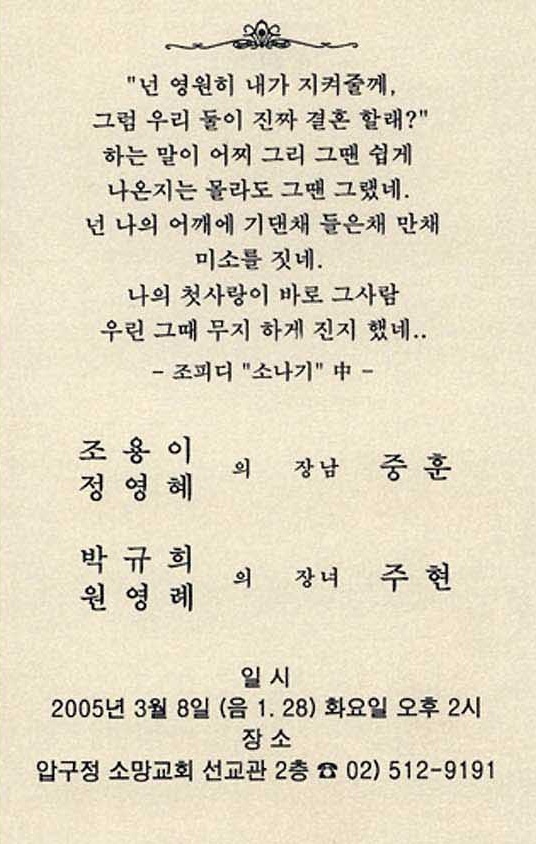 "넌 영원히 내가 지켜줄께,
그럼 우리 둘이 진짜 결혼 할래?"
하는 말이 어찌 그리 그땐 쉽게
나온지는 몰라도 그땐 그랬네.
넌 나의 어깨에 기댄채 들은채 만채
미소를 짓네.
나의 첫사랑이 바로 그사람
우린 그때 무지 하게 진지 했네..
- 조피디 "소나기" 中 -
조 용 이
정 영 혜
의 장남 중 훈
박 규 희
원 영 례
의 장녀 주 현
일 시
2005년 3월 8일 (음 1. 28) 화요일 오후 2시
장 소
압구정 소망교회 선교관 2층 ☎ 02) 512-9191